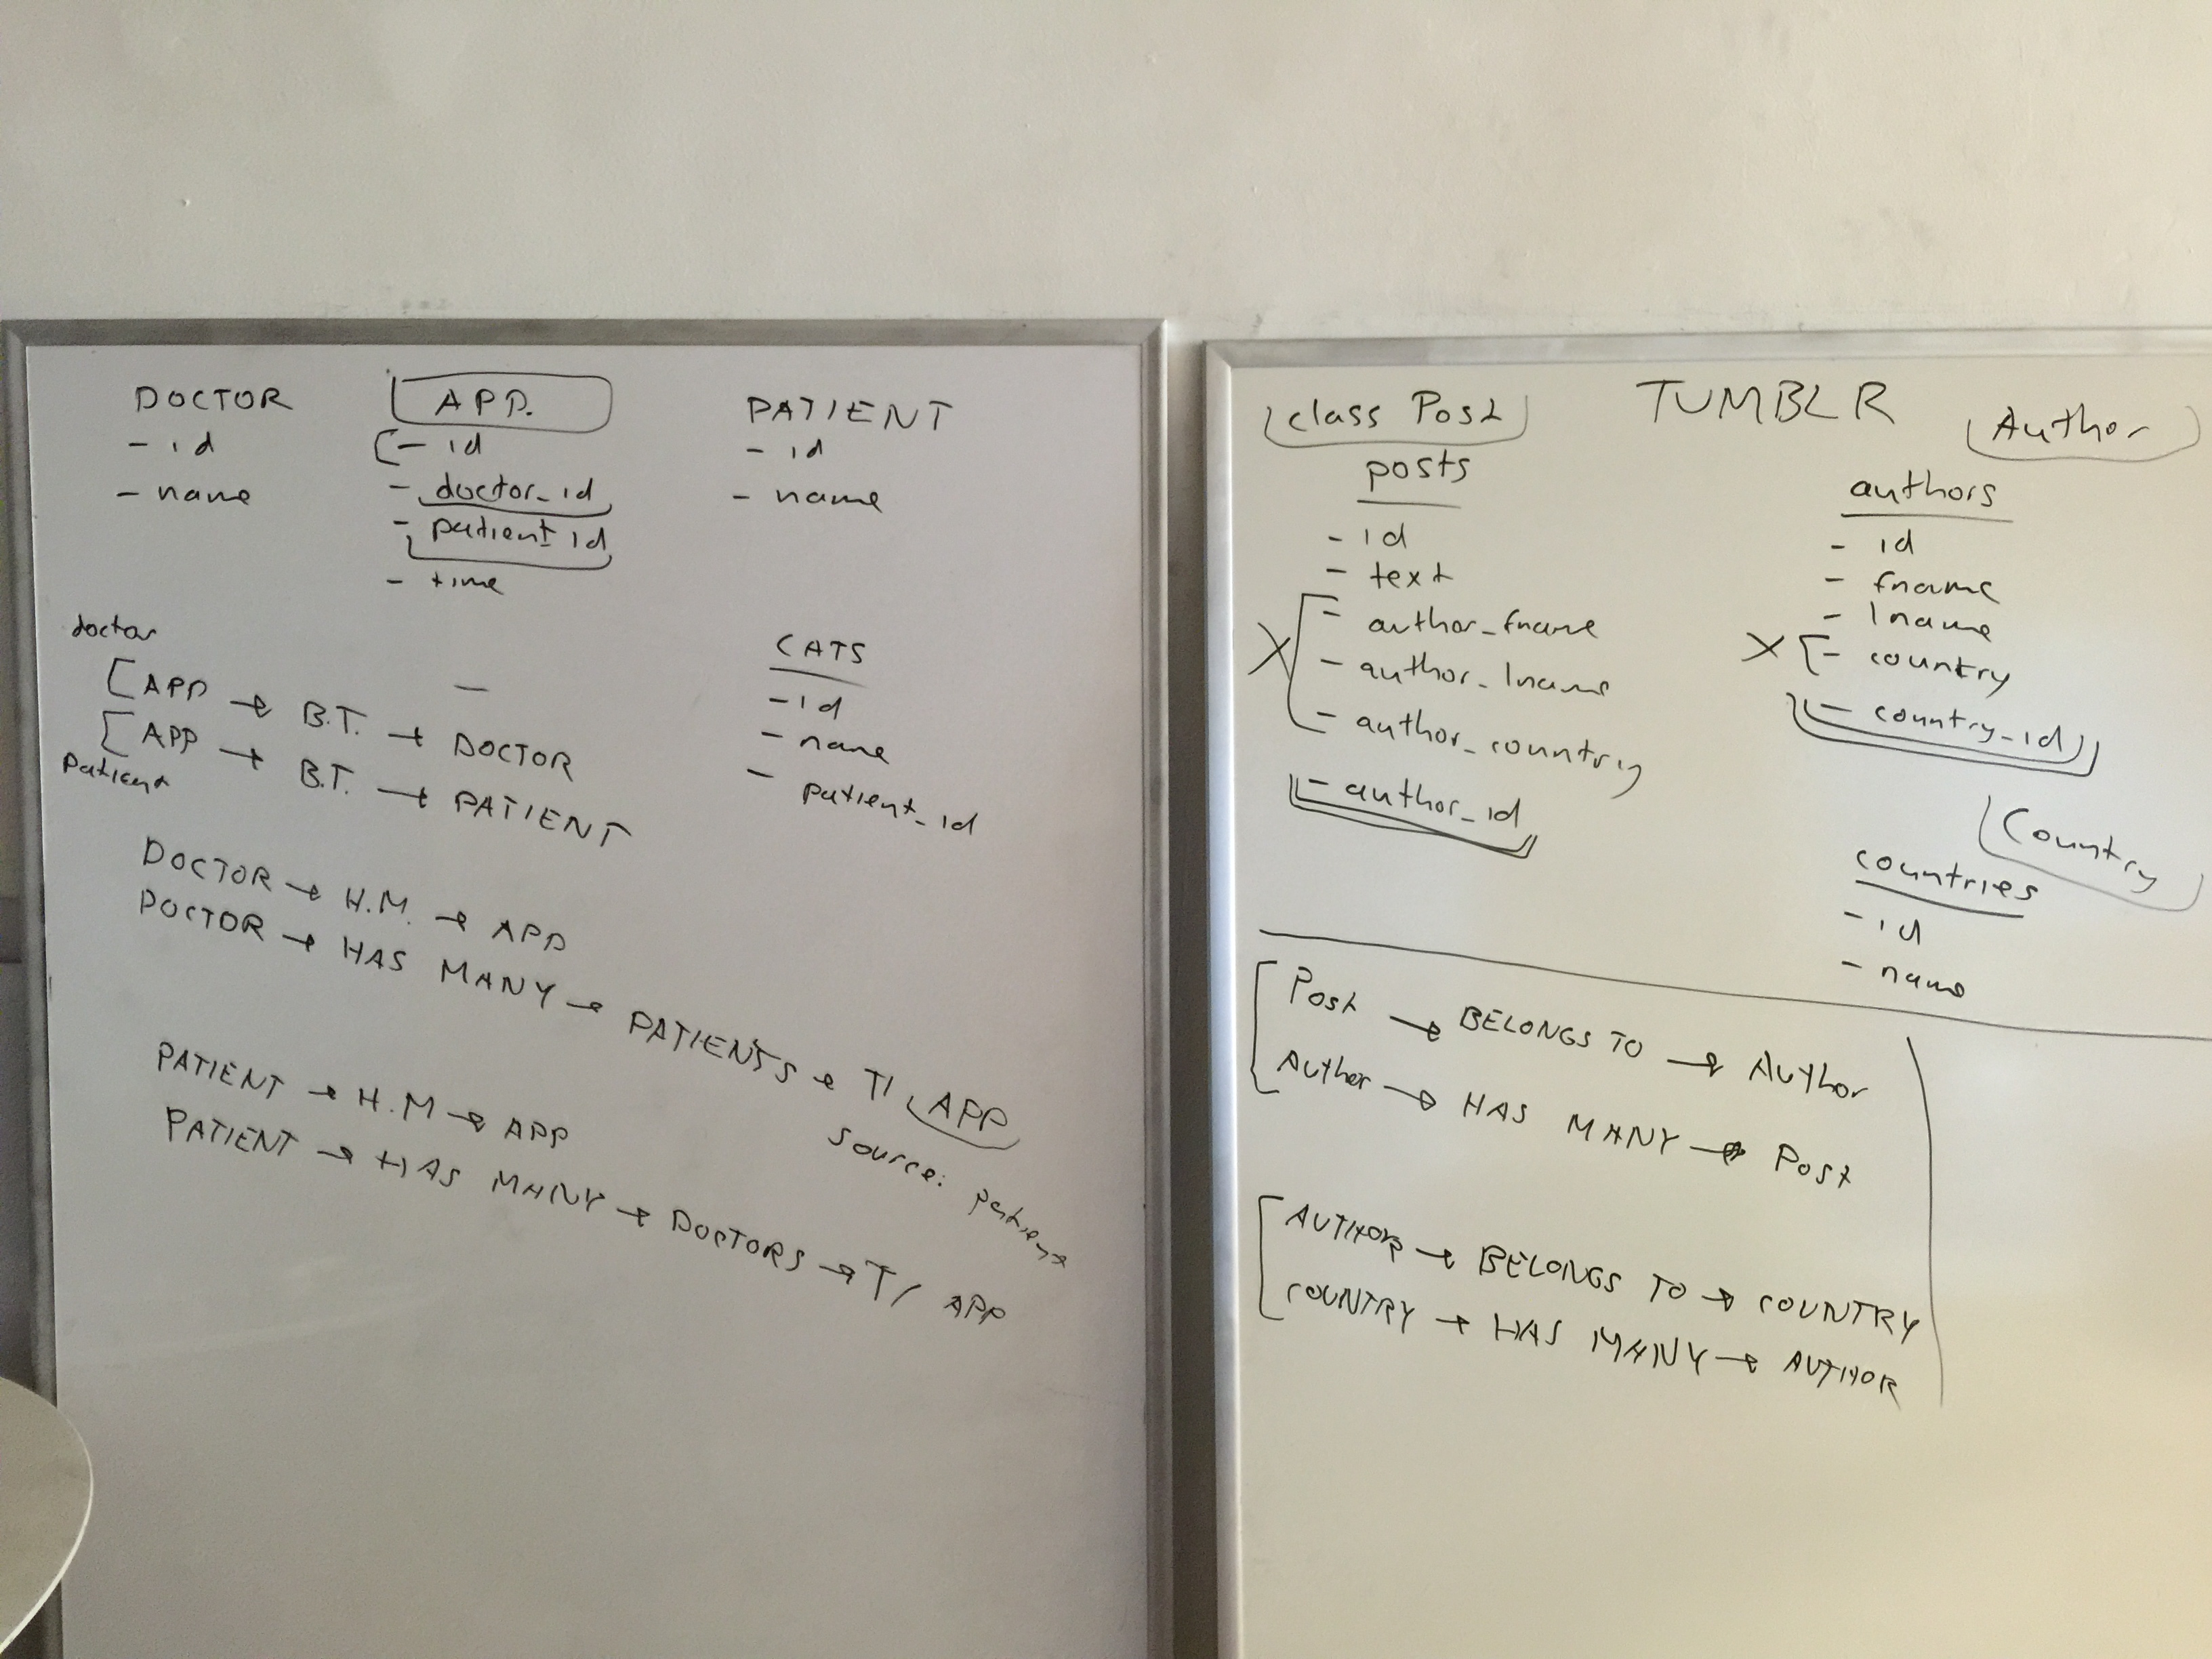 DOCTOR
- id
- name
APP.
- id
- doctor_id
- patient_id
- time
PATIENT
- id
- name
doctor
APP → B.T. → DOCTOR
APP → B.T. → PATIENT
patient
CATS
- id
- name
- patient_id
DOCTOR → H.M. → APP
DOCTOR → HAS MANY → PATIENTS → T/ APP
source: patient
PATIENT → H.M → APP
PATIENT → HAS MANY → DOCTORS → T/ APP
TUMBLR
class Post
posts
- id
- text
X - author_fname
- author_lname
- author_country
- author_id
Author
authors
- id
- fname
- lname
X - country
- country_id
Country
countries
- id
- name
Post → BELONGS TO → Author
Author → HAS MANY → Post
AUTHOR → BELONGS TO → COUNTRY
COUNTRY → HAS MANY → AUTHOR